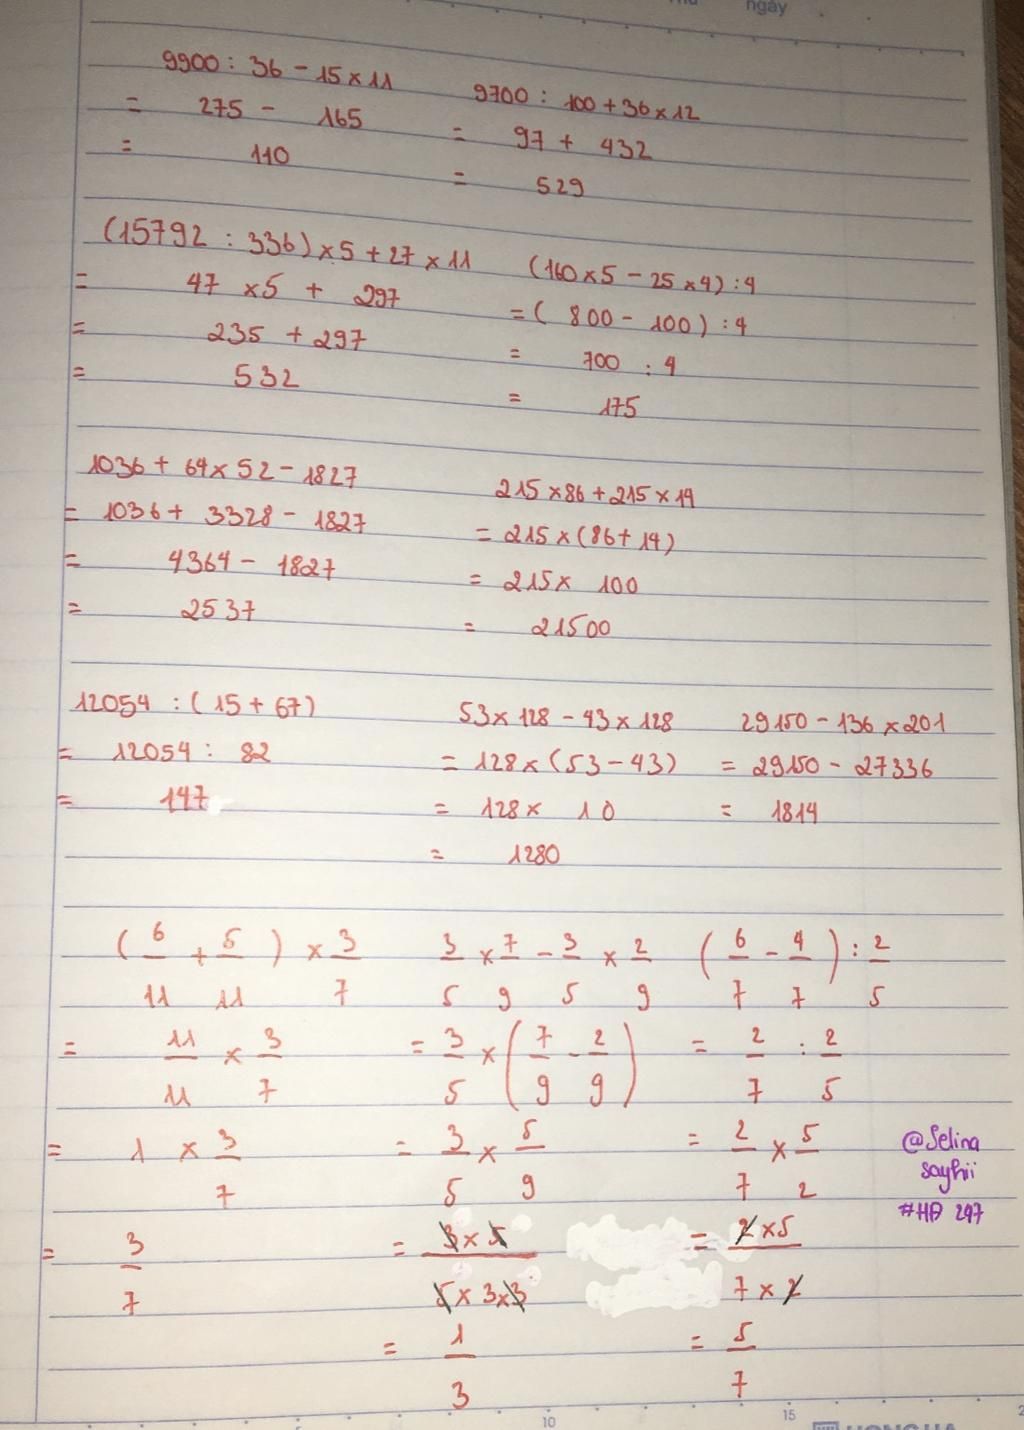 ngày
9900 : 36 - 15 x 11
= 275 - 165
= 110
9700 : 100 + 36 x 12
= 97 + 432
= 529
(15792 : 336) x 5 + 27 x 11
= 47 x 5 + 297
= 235 + 297
= 532
(160 x 5 - 25 x 4) : 4
= (800 - 100) : 4
= 700 : 4
= 175
1036 + 64 x 52 - 1827
= 1036 + 3328 - 1827
= 4364 - 1827
= 2537
215 x 86 + 215 x 14
= 215 x (86 + 14)
= 215 x 100
= 21500
12054 : (15 + 67)
= 12054 : 82
= 147
53 x 128 - 43 x 128
= 128 x (53 - 43)
= 128 x 10
= 1280
29150 - 136 x 201
= 29150 - 27336
= 1814
(6/11 + 5/11) x 3/7
= 11/11 x 3/7
= 1 x 3/7
= 3/7
3/5 x 7/9 - 3/5 x 2/9
= 3/5 x (7/9 - 2/9)
= 3/5 x 5/9
= 3 x 5 / 5 x 3 x 3
= 1/3
(6/7 - 4/7) : 2/5
= 2/7 : 2/5
= 2/7 x 5/2
= 2 x 5 / 7 x 2
= 5/7
@Selina
sayhii
#HĐ 247
10
15
HONG HA